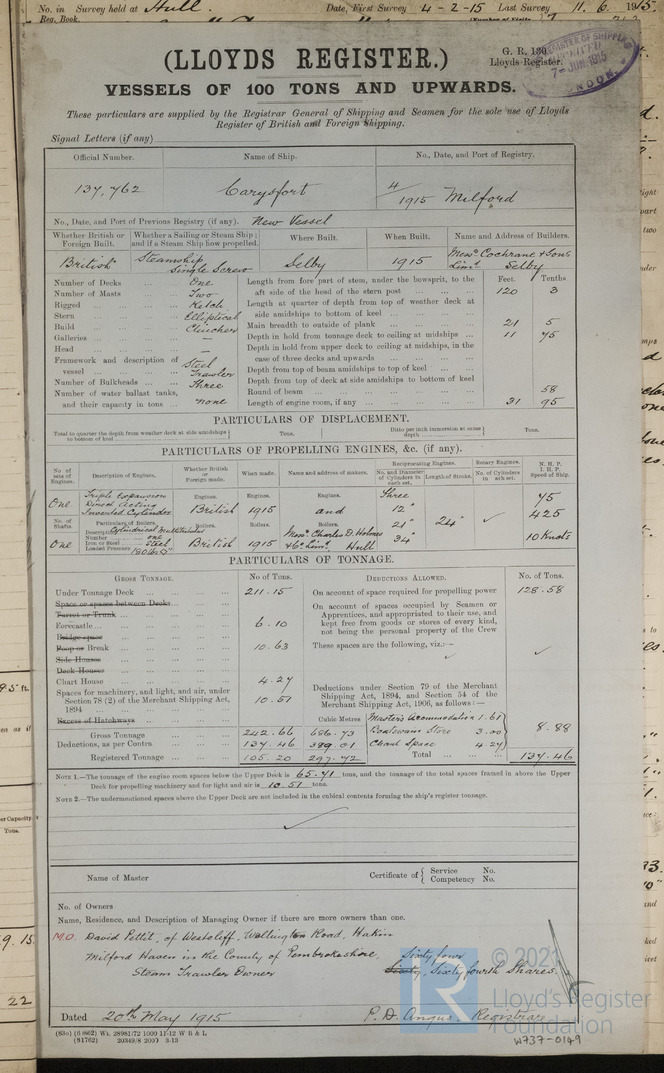 No. in Survey held at Hull. Date, First Survey 4-2-15 Last Survey 11. 6. 1915.
Reg. Book.
(LLOYDS REGISTER.)
G. R. 130.
Lloyds Register.
VESSELS OF 100 TONS AND UPWARDS.
These particulars are supplied by the Registrar General of Shipping and Seamen for the sole use of Lloyds
Register of British and Foreign Shipping.
Signal Letters (if any)
Official Number. Name of Ship. No., Date, and Port of Registry.
137,762 Carysfort 4/1915 Milford
No., Date, and Port of Previous Registry (if any). New Vessel
Whether British or Foreign Built. Whether a Sailing or Steam Ship; and if a Steam Ship how propelled. Where Built. When Built. Name and Address of Builders.
British Steamship Single Screw Selby 1915 Messrs Cochrane & Sons Limd. Selby
Number of Decks One
Number of Masts Two
Rigged Ketch
Stern Elliptical
Build Clincher
Galleries —
Head —
Framework and description of vessel Steel Trawler
Number of Bulkheads Three
Number of water ballast tanks, and their capacity in tons none
Feet. Tenths
Length from fore part of stem, under the bowsprit, to the aft side of the head of the stern post 120 3
Length at quarter of depth from top of weather deck at side amidships to bottom of keel
Main breadth to outside of plank 21 5
Depth in hold from tonnage deck to ceiling at midships 11 75
Depth in hold from upper deck to ceiling at midships, in the case of three decks and upwards
Depth from top of beam amidships to top of keel
Depth from top of deck at side amidships to bottom of keel
Round of beam 58
Length of engine room, if any 31 95
PARTICULARS OF DISPLACEMENT.
Total to quarter the depth from weather deck at side amidships to bottom of keel Tons. Ditto per inch immersion at same depth Tons.
PARTICULARS OF PROPELLING ENGINES, &c. (if any).
No. of sets of Engines. Description of Engines. Whether British or Foreign made. When made. Name and address of makers. Reciprocating Engines. Rotary Engines. N. H. P. I. H. P. Speed of Ship.
No. and Diameter of Cylinders in each set. Length of Stroke. No. of Cylinders in each set.
One Triple Expansion Direct Acting Inverted Cylinder Engines. British Engines. 1915 Engines. and Three 12" 21" 34" 24" ✓ 75 425 10 Knots
No. of Shafts. Particulars of Boilers. Boilers. Boilers. Boilers.
One Description Cylindrical Multitubular Number one Iron or Steel Steel Loaded Pressure 180 lbs British 1915 Messrs Charles D. Holmes & Co. Limd. Hull
PARTICULARS OF TONNAGE.
GROSS TONNAGE. No. of Tons. DEDUCTIONS ALLOWED. No. of Tons.
Under Tonnage Deck 211.15
Space or spaces between Decks
Turret or Trunk
Forecastle 6.10
Bridge space
Poop or Break 10.63
Side Houses
Deck Houses
Chart House 4.27
Spaces for machinery, and light, and air, under Section 78 (2) of the Merchant Shipping Act, 1894 10.51
Excess of Hatchways
On account of space required for propelling power 128.58
On account of spaces occupied by Seamen or Apprentices, and appropriated to their use, and kept free from goods or stores of every kind, not being the personal property of the Crew
These spaces are the following, viz.:— ✓
Deductions under Section 79 of the Merchant Shipping Act, 1894, and Section 54 of the Merchant Shipping Act, 1906, as follows:—
Cubic Metres
Gross Tonnage 242.66 686.73
Deductions, as per Contra 137.46 389.01
Registered Tonnage 105.20 297.72
Master's Accommodation 1.61
Boatswains Store 3.00 8.88
Chart Space 4.27
Total 137.46
NOTE 1.—The tonnage of the engine room spaces below the Upper Deck is 65.71 tons, and the tonnage of the total spaces framed in above the Upper
Deck for propelling machinery and for light and air is 10.51 tons.
NOTE 2.—The undermentioned spaces above the Upper Deck are not included in the cubical contents forming the ship's register tonnage.
Name of Master Certificate of { Service No. Competency No.
No. of Owners
Name, Residence, and Description of Managing Owner if there are more owners than one.
M.O. David Pettit, of Westcliff, Wellington Road, Hakin
Milford Haven in the County of Pembrokeshire, Sixty four
Steam Trawler Owner Sixty, Sixty fourth Shares.
Dated 20th May 1915 P. D. Angus. Registrar
(83o) (6862) Wt. 28981/72 1000 11-12 W B & L
(81762) 20349/8 2000 3-13
© 2021
Lloyd's Register
Foundation
W737-0149